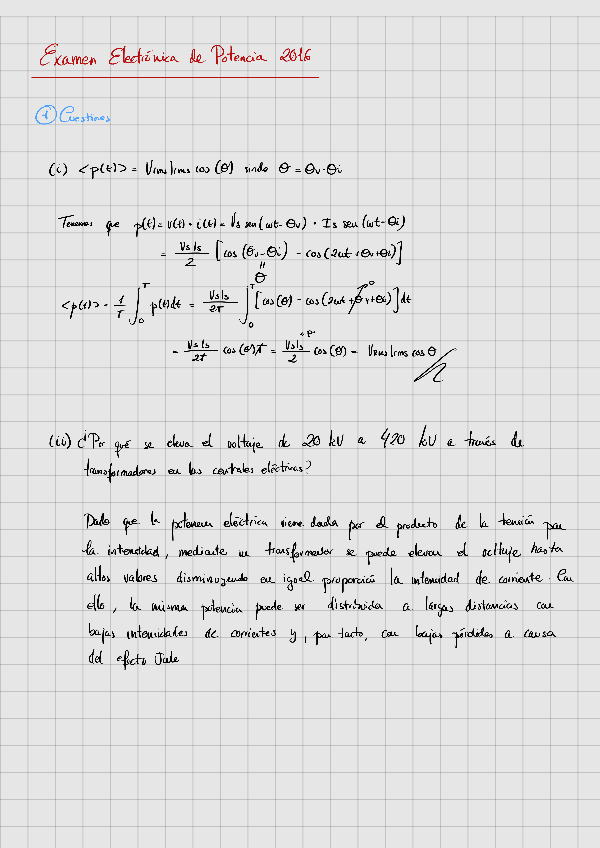 Examen Electrónica de Potencia 2016
① Cuestiones
(i) <p(t)> = Vrms Irms cos(θ) siendo θ = θv - θi
Tenemos que p(t) = v(t) · i(t) = Vs sen(ωt - θv) · Is sen(ωt - θi)
= VsIs/2 [cos(θv - θi) - cos(2ωt + θv + θi)]
"
θ
<p(t)> = 1/T ∫₀ᵀ p(t)dt = VsIs/2T ∫₀ᵀ [cos(θ) - cos(2ωt + θv + θi)]dt
0
= VsIs/2T cos(θ)T = VsIs/2 cos(θ) = Vrms Irms cos θ
(ii) ¿Por qué se eleva el voltaje de 20 kV a 420 kV a través de
transformadores en las centrales eléctricas?
Dado que la potencia eléctrica viene dada por el producto de la tensión por
la intensidad, mediante un transformador se puede elevar el voltaje hasta
altos valores disminuyendo en igual proporción la intensidad de corriente. Con
ello, la misma potencia puede ser distribuida a largas distancias con
bajas intensidades de corrientes y, por tanto, con bajas pérdidas a causa
del efecto Joule